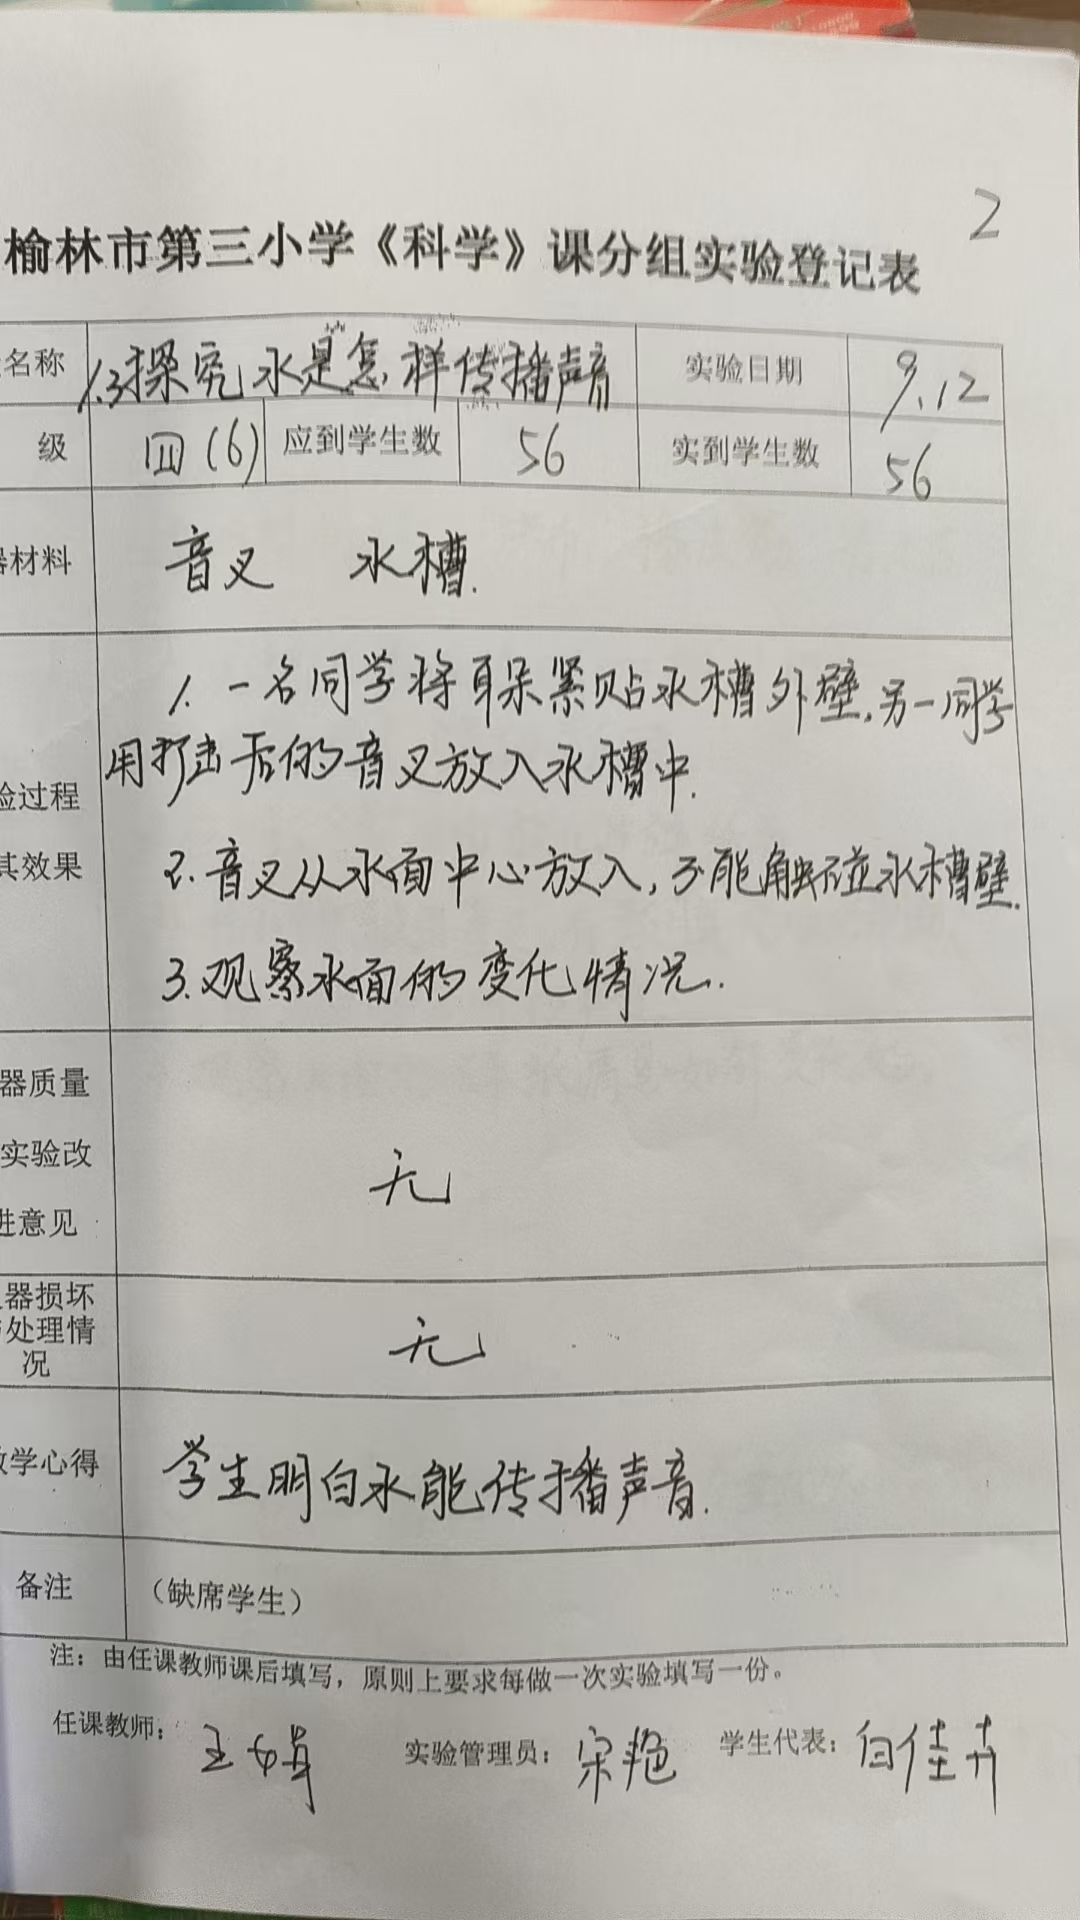 2
榆林市第三小学《科学》课分组实验登记表
名称 1.3探究水是怎样传播声音 实验日期 9.12
级 四(6) 应到学生数 56 实到学生数 56
材料 音叉 水槽.
1. 一名同学将耳朵紧贴水槽外壁,另一同学
用打击后的音叉放入水槽中.
验过程
其效果
2.音叉从水面中心放入,不能触碰水槽壁.
3.观察水面的变化情况.
器质量
实验改
进意见
无
器损坏
处理情
况
无
教学心得 学生明白水能传播声音.
备注 (缺席学生)
注: 由任课教师课后填写,原则上要求每做一次实验填写一份。
任课教师: 王 实验管理员: 宋艳 学生代表: 白佳卉